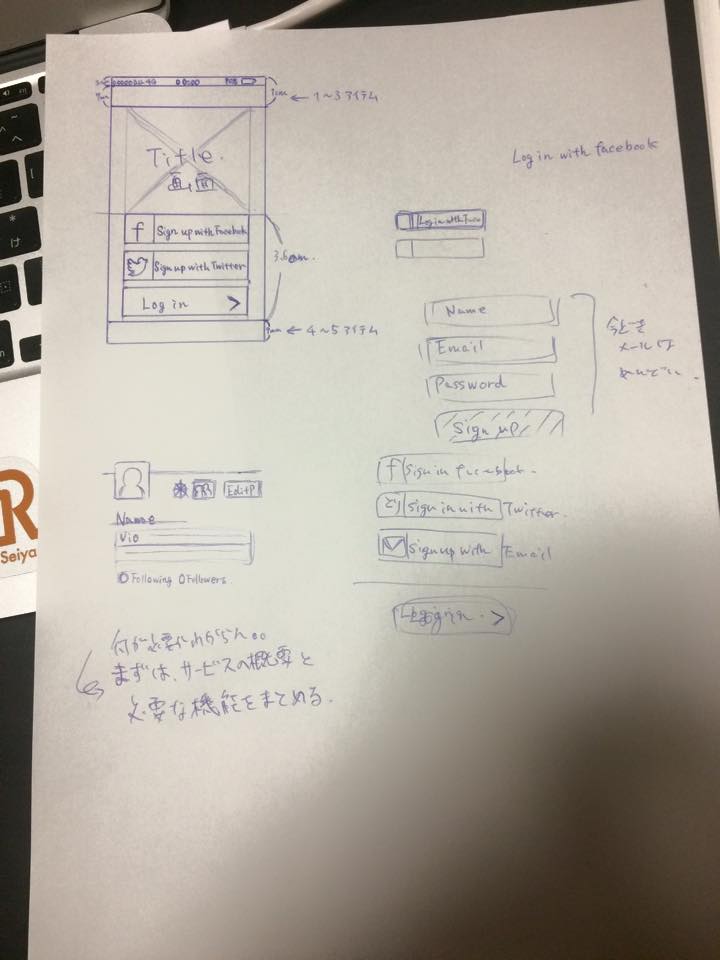 00:00
1～3アイテム
Title
画面
f
Sign up with Facebook
Sign up with Twitter
Log in >
4～5アイテム
Log in with facebook
Name
Email
Password
Sign up
今どき
メールは
f sign in facebook.
とり sign in with Twitter.
Sign up with Email
Log in >
EditP
Name
Vio
0 Following 0 Followers
何が必要かわからん。。
まずは、サービスの概要と
必要な機能をまとめる。
R
Seiya